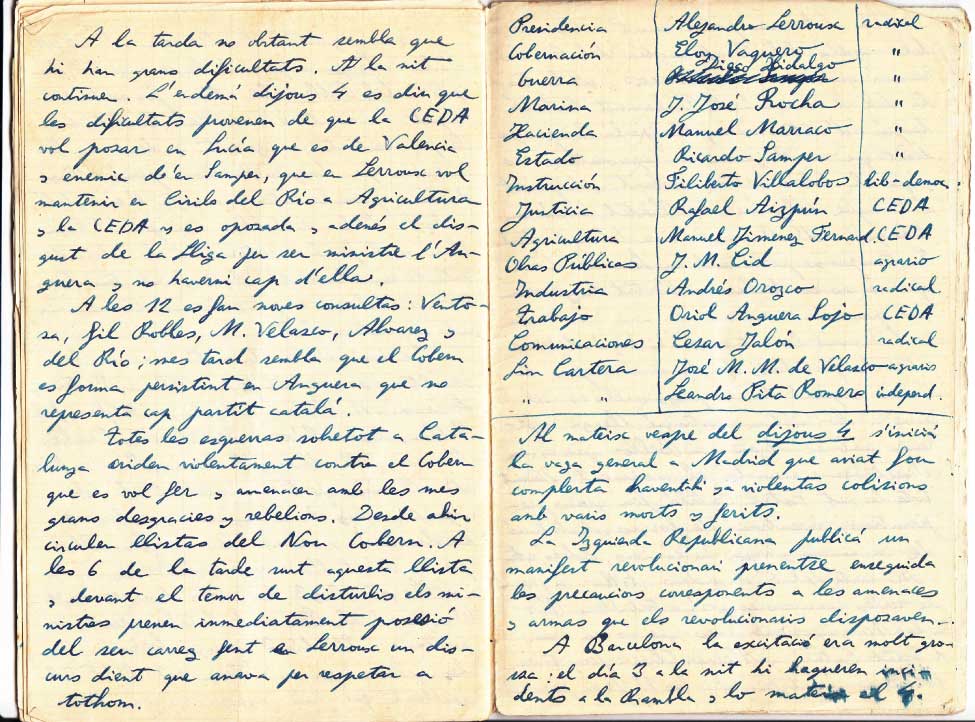 A la tarda no obstant sembla que
hi han grans dificultats. A la nit
continuen. L'endemá dijous 4 es diu que
les dificultats provenen de que la CEDA
vol posar en Lucía que es de Valencia
y enemic d'en Samper, que en Lerroux vol
mantenir en Cirilo del Río a Agricultura
y la CEDA s'y es oposada y adenés el dis-
gust de la Lliga per ser ministre l'An-
guera y no haverni cap d'ella.
A les 12 es fan noves consultas: Vento-
sa, Gil Robles, M. Velasco, Alvarez y
del Río; mes tard sembla que el Gobern
es forma persistint en Anguera que no
representa cap partit catalá.
Totes les esquerras sobretot a Cata-
lunya criden violentament contra el Gobern
que es vol fer y amenacen amb les mes
grans desgracies y rebelions. Desde ahir
circulen llistas del Nou Gobern. A
les 6 de la tarde surt aquesta llista
y devant el temor de disturbis els mi-
nistres prenen inmediatament posesió
del seu carrec fent en Lerroux un dis-
curs dient que anava fer respetar a
tothom.
Presidencia Alejandro Lerroux radical
Gobernación Eloy Vaquero "
Guerra Diego Hidalgo "
Marina J. José Rocha "
Hacienda Manuel Marraco "
Estado Ricardo Samper "
Instrucción Filiberto Villalobos lib-democ.
Justicia Rafael Aizpún CEDA
Agricultura Manuel Jimenez Fernand. CEDA
Obras Públicas J. M. Cid agrario
Industria Andrés Orozco radical
Trabajo Oriol Anguera Sojo CEDA
Comunicaciones Cesar Jalón radical
Sin Cartera José M. M. de Velasco agrario
" " Leandro Pita Romero independ.
Al mateix vespre del dijous 4 s'iniciá
la vaga general a Madrid que aviat fou
complerta haventhi ya violentas colisions
amb varis morts y ferits.
La Izquierda Republicana publicá un
manifest revolucionari prenentse enseguida
les precaucions corresponents a les amenaces
y armas que els revolucionaris disposaven.
A Barcelona la excitació era molt gro-
ssa: el día 3 a la nit hi hagueren inci-
dents a la Rambla y lo mateix el 4.